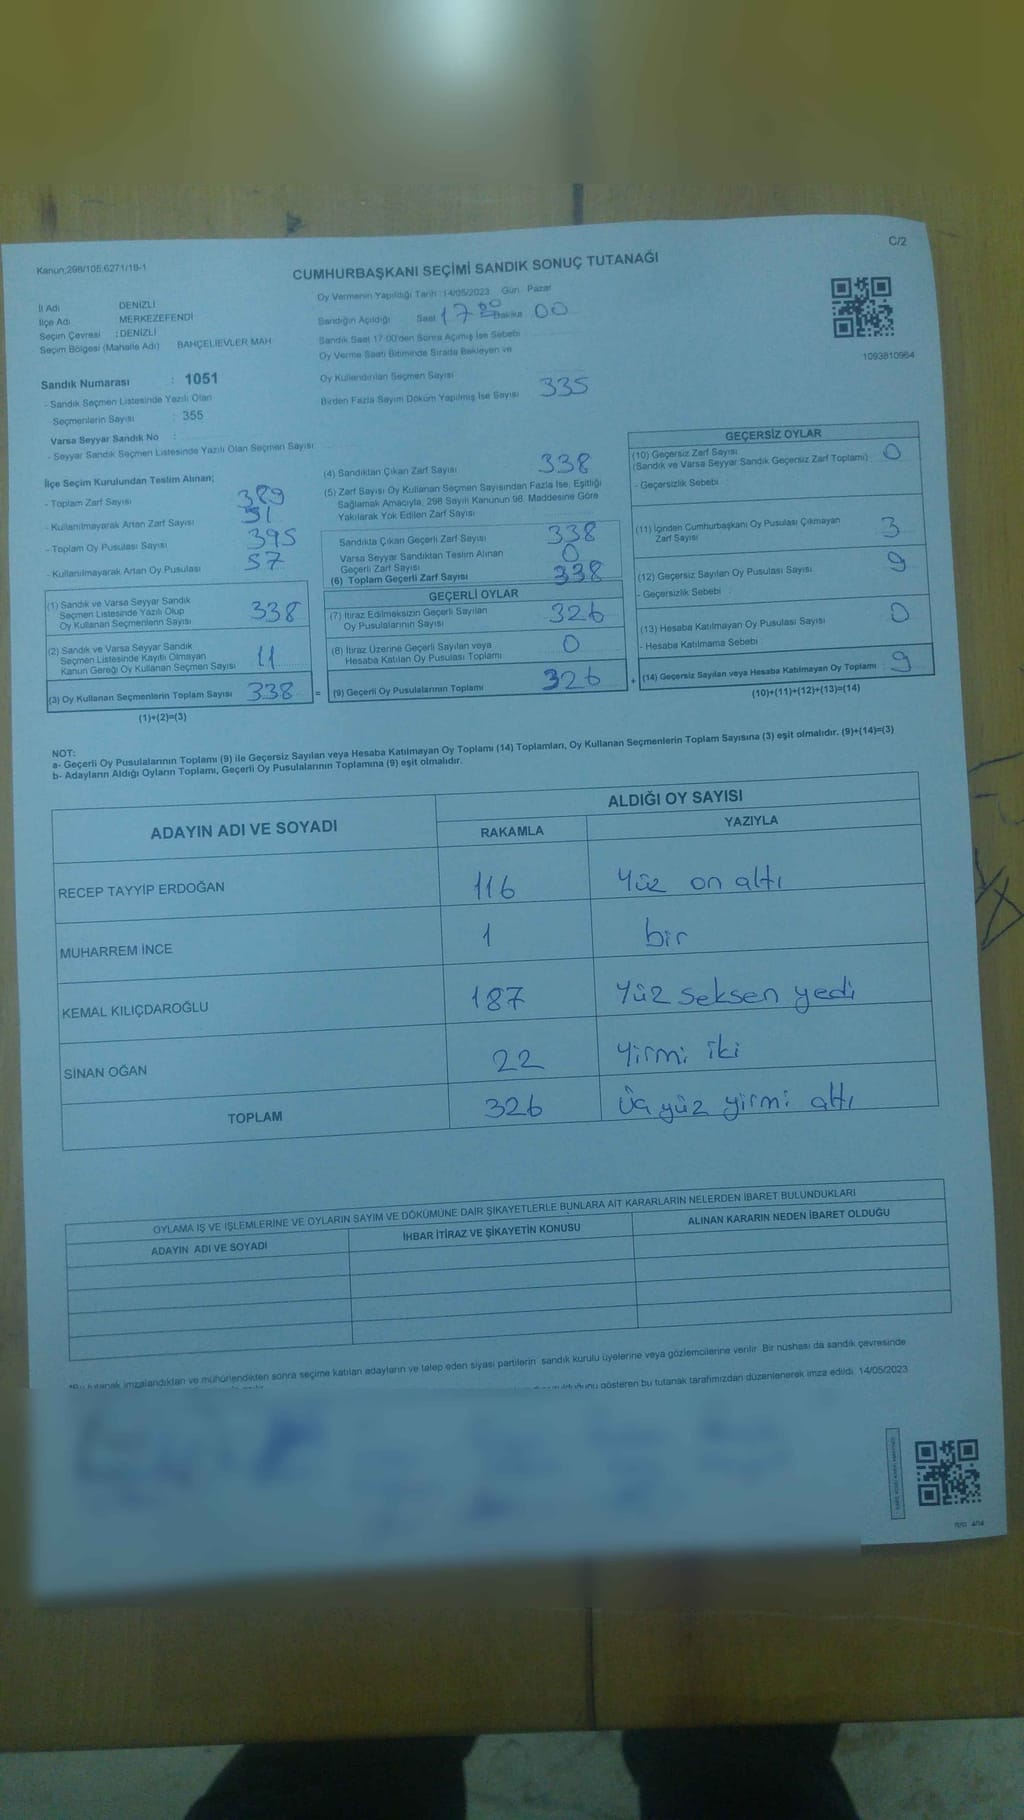 C/2
Kanun;298/105;6271/18-1
CUMHURBAŞKANI SEÇİMİ SANDIK SONUÇ TUTANAĞI
İl Adı DENİZLİ
İlçe Adı MERKEZEFENDİ
Seçim Çevresi : DENİZLİ
Seçim Bölgesi (Mahalle Adı) BAHÇELİEVLER MAH
Sandık Numarası : 1051
- Sandık Seçmen Listesinde Yazılı Olan
Seçmenlerin Sayısı : 355
Varsa Seyyar Sandık No :
- Seyyar Sandık Seçmen Listesinde Yazılı Olan Seçmen Sayısı:
Oy Vermenin Yapıldığı Tarih :14/05/2023 Gün: Pazar
Sandığın Açıldığı Saat 17 00 Dakika 00
Sandık Saat 17:00'den Sonra Açımış İse Sebebi
Oy Verme Saati Bitiminde Sırada Bekleyen ve
Oy Kullandırılan Seçmen Sayısı
Birden Fazla Sayım Döküm Yapılmış İse Sayısı 335
1093810964
İlçe Seçim Kurulundan Teslim Alınan;
- Toplam Zarf Sayısı 389
- Kullanılmayarak Artan Zarf Sayısı 51
- Toplam Oy Pusulası Sayısı 395
- Kullanılmayarak Artan Oy Pusulası 57
(1) Sandık ve Varsa Seyyar Sandık
Seçmen Listesinde Yazılı Olup
Oy Kullanan Seçmenlerin Sayısı 338
(2) Sandık ve Varsa Seyyar Sandık
Seçmen Listesinde Kayıtlı Olmayan
Kanun Gereği Oy Kullanan Seçmen Sayısı 11
(3) Oy Kullanan Seçmenlerin Toplam Sayısı 338 =
(1)+(2)=(3)
(4) Sandıktan Çıkan Zarf Sayısı 338
(5) Zarf Sayısı Oy Kullanan Seçmen Sayısından Fazla İse, Eşitliği
Sağlamak Amacıyla, 298 Sayılı Kanunun 98. Maddesine Göre
Yakılarak Yok Edilen Zarf Sayısı
Sandıkta Çıkan Geçerli Zarf Sayısı 338
Varsa Seyyar Sandıktan Teslim Alınan
Geçerli Zarf Sayısı 0
(6) Toplam Geçerli Zarf Sayısı 338
GEÇERLİ OYLAR
(7) İtiraz Edilmeksizin Geçerli Sayılan
Oy Pusulalarının Sayısı 326
(8) İtiraz Üzerine Geçerli Sayılan veya
Hesaba Katılan Oy Pusulası Toplamı 0
(9) Geçerli Oy Pusulalarının Toplamı 326 +
GEÇERSİZ OYLAR
(10) Geçersiz Zarf Sayısı
(Sandık ve Varsa Seyyar Sandık Geçersiz Zarf Toplamı) 0
- Geçersizlik Sebebi
(11) İçinden Cumhurbaşkanı Oy Pusulası Çıkmayan
Zarf Sayısı 3
(12) Geçersiz Sayılan Oy Pusulası Sayısı 9
- Geçersizlik Sebebi :
(13) Hesaba Katılmayan Oy Pusulası Sayısı 0
- Hesaba Katılmama Sebebi
(14) Geçersiz Sayılan veya Hesaba Katılmayan Oy Toplamı : 9
(10)+(11)+(12)+(13)=(14)
NOT:
a- Geçerli Oy Pusulalarının Toplamı (9) ile Geçersiz Sayılan veya Hesaba Katılmayan Oy Toplamı (14) Toplamları, Oy Kullanan Seçmenlerin Toplam Sayısına (3) eşit olmalıdır. (9)+(14)=(3)
b- Adayların Aldığı Oyların Toplamı, Geçerli Oy Pusulalarının Toplamına (9) eşit olmalıdır.
ADAYIN ADI VE SOYADI ALDIĞI OY SAYISI
RAKAMLA YAZIYLA
RECEP TAYYİP ERDOĞAN 116 Yüz on altı
MUHARREM İNCE 1 bir
KEMAL KILIÇDAROĞLU 187 Yüz seksen yedi
SİNAN OĞAN 22 Yirmi iki
TOPLAM 326 Üç yüz yirmi altı
OYLAMA İŞ VE İŞLEMLERİNE VE OYLARIN SAYIM VE DÖKÜMÜNE DAİR ŞİKAYETLERLE BUNLARA AİT KARARLARIN NELERDEN İBARET BULUNDUKLARI
ADAYIN ADI VE SOYADI İHBAR İTİRAZ VE ŞİKAYETİN KONUSU ALINAN KARARIN NEDEN İBARET OLDUĞU
*Bu tutanak imzalandıktan ve mühürlendikten sonra seçime katılan adayların ve talep eden siyasi partilerin sandık kurulu üyelerine veya gözlemcilerine verilir. Bir nüshası da sandık çevresinde
gösteren bu tutanak tarafımızdan düzenlenerek imza edildi. 14/05/2023